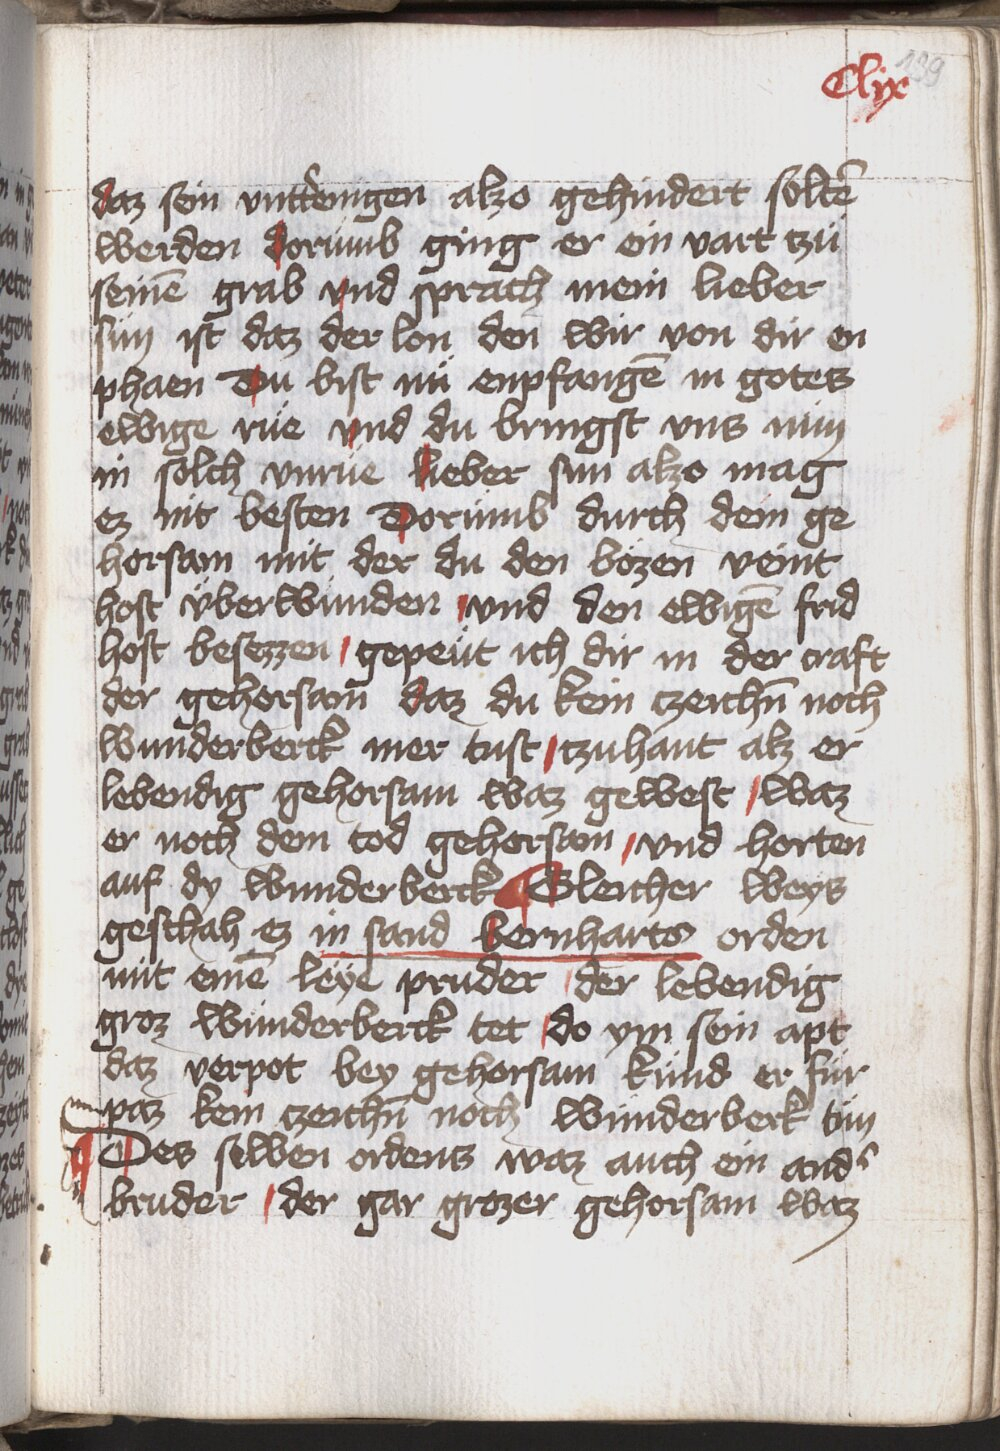 Clix 189
daz sein unttenigen alzo gehindert soltē
werden dorümb ging er ein vart tzü
seinē grab vnd sprach mein lieber
sün ist daz der lon den wir von dir en
phaen Du bist nü enpfangē in gotes
ewige rüe vnd du bringst vns nün
in solch vnrüe lieber sun alzo mag
ez nit besten Dorümb durch dein ge
horsam mit der du den bözen veint
host überwünden vnd den ewigē frid
host besezzen gepeüt ich dir in der craft
der gehorsam daz du kein czeichn̄ noch
wunderberck mer tust tzuhant alz er
lebendig gehorsam waz gewest waz
er noch dem tod gehorsam vnd horten
auf dy wunderberck Gleicher weys
geschah ez in sand bernharts orden
mit einē leye pruder der lebendig
groz wünderberck tet do ym sein apt
daz verpot bey gehorsam künd er für
paz kein czeichn̄ noch wünderberk tün
Des selben ordens waz auch ein and̛
bruder der gar grozer gehorsam waz